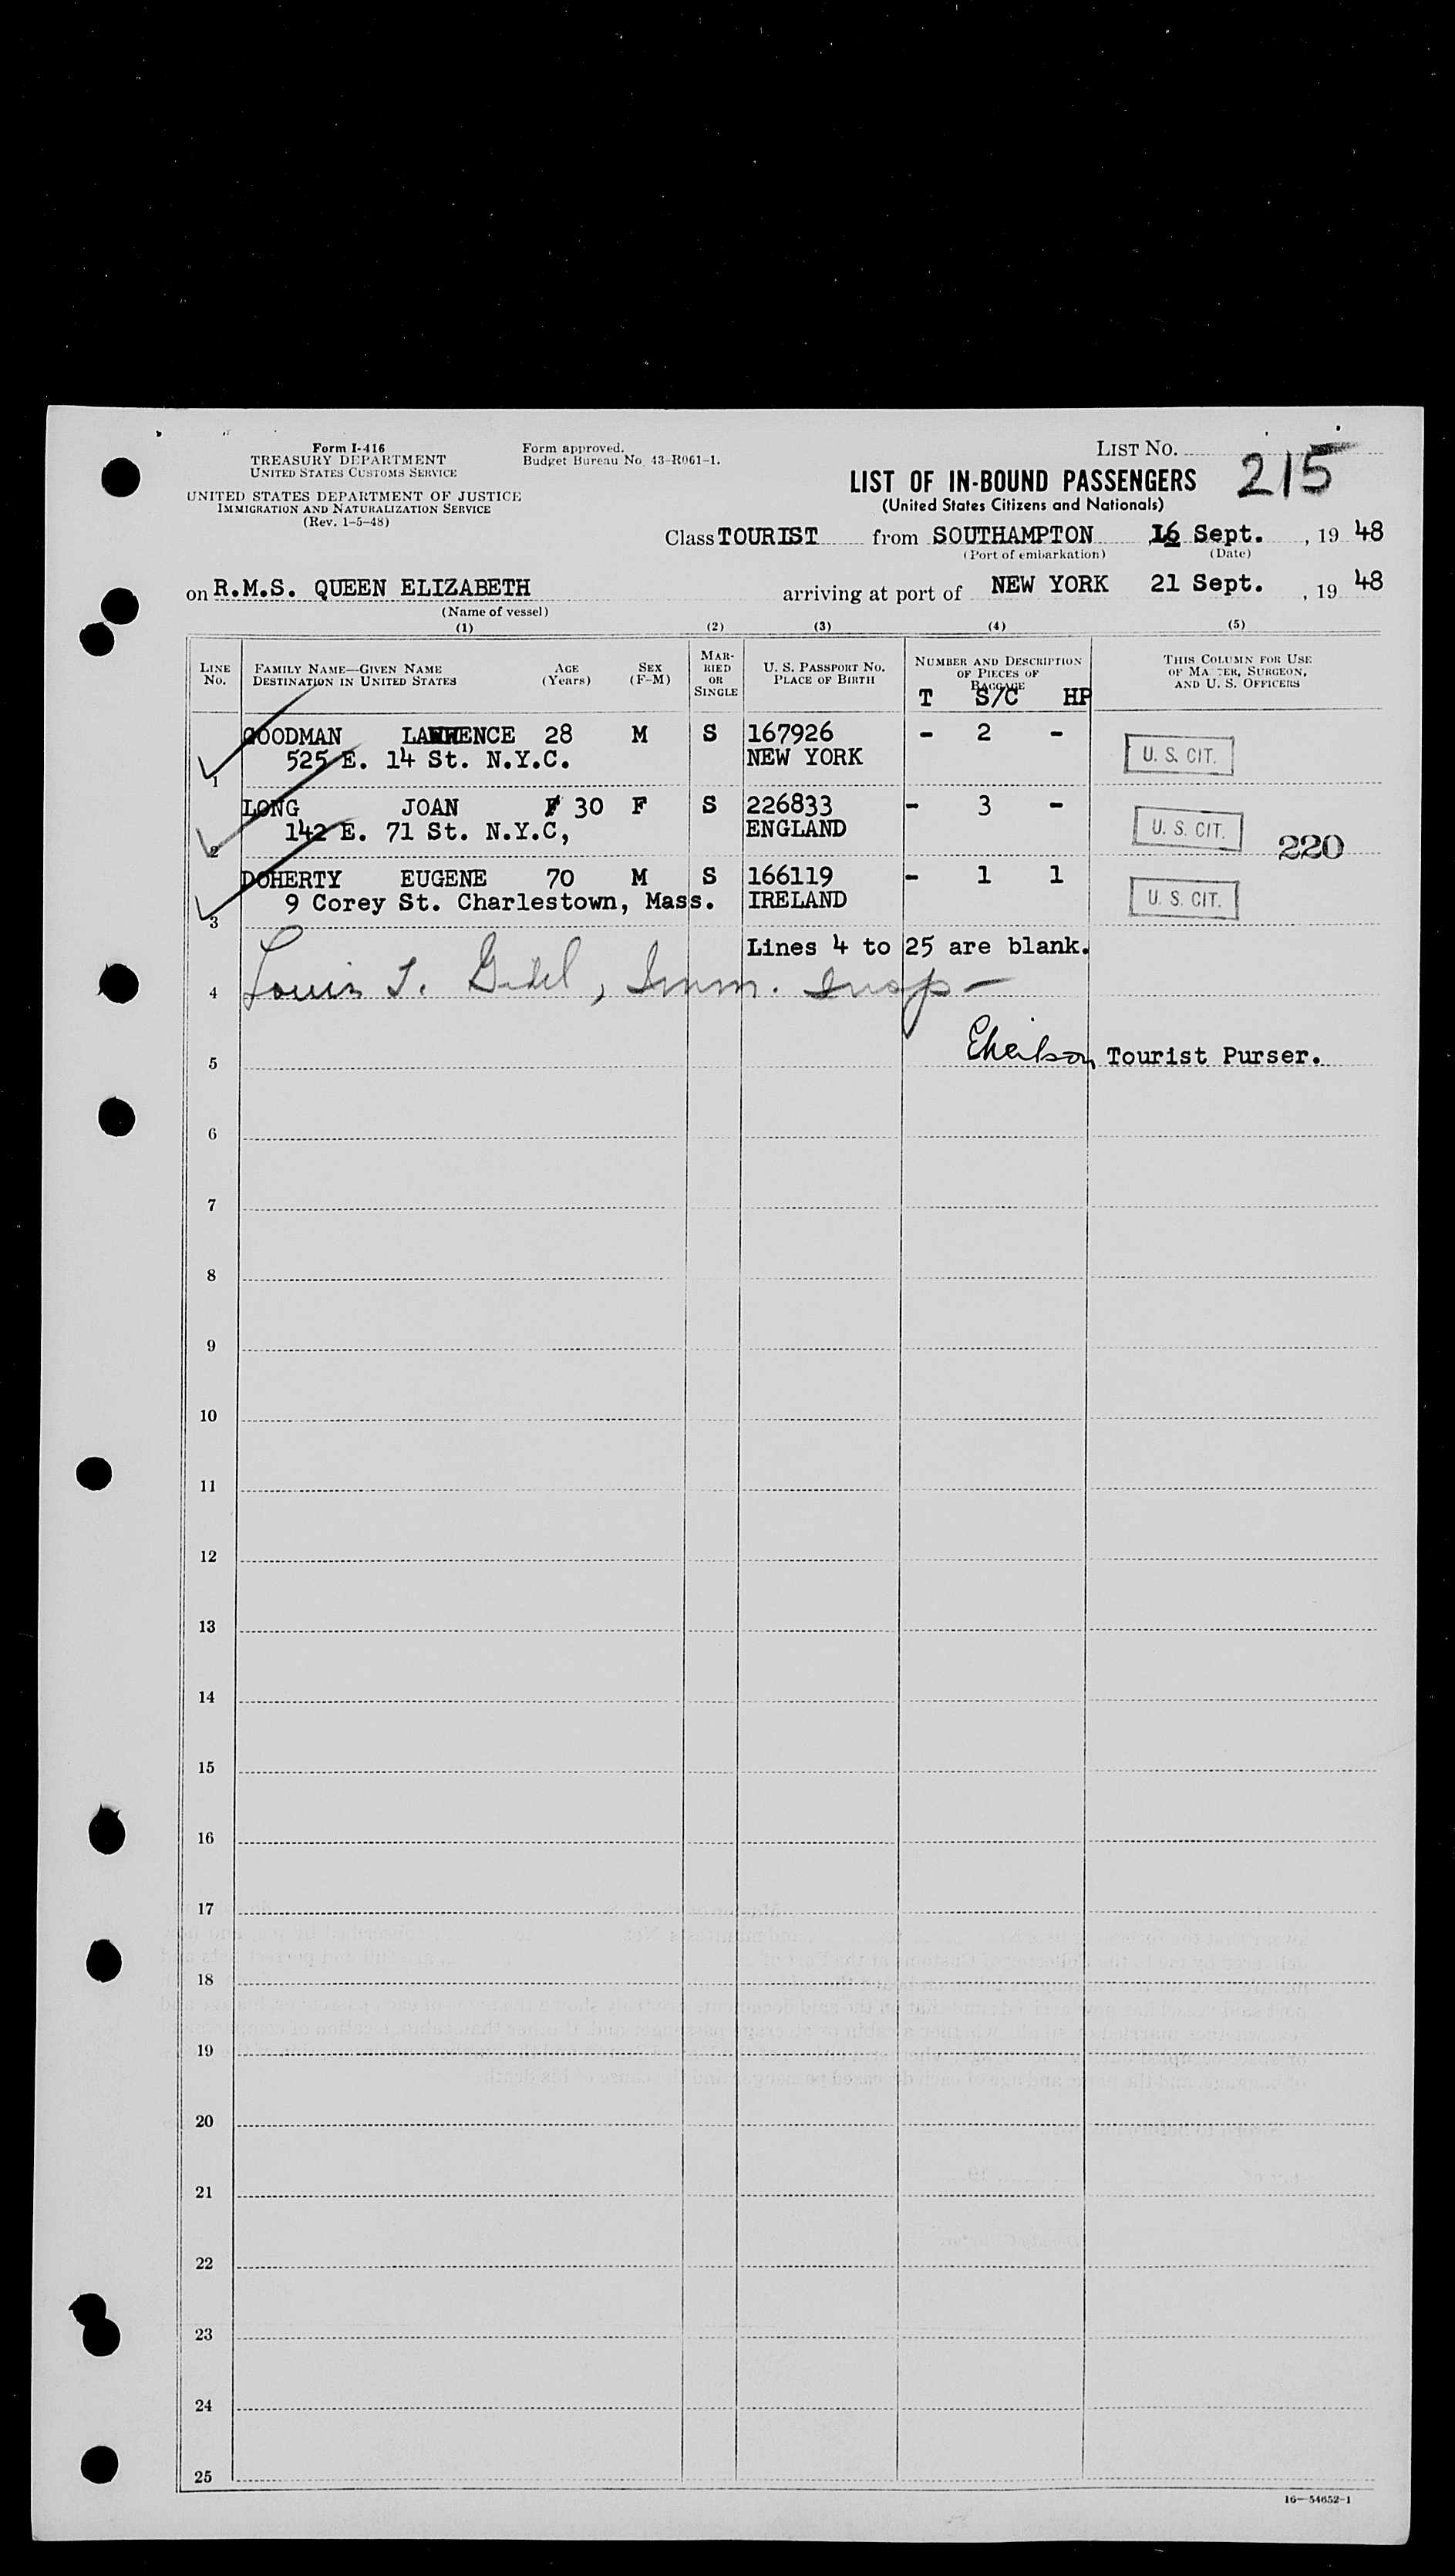 Form I-416
TREASURY DEPARTMENT
UNITED STATES CUSTOMS SERVICE
UNITED STATES DEPARTMENT OF JUSTICE
IMMIGRATION AND NATURALIZATION SERVICE
(Rev. 1-5-48)
Form approved.
Budget Bureau No. 43-R061-1.
LIST NO. 215
LIST OF IN-BOUND PASSENGERS
(United States Citizens and Nationals)
Class TOURIST from SOUTHAMPTON 16 Sept. , 19 48
(Port of embarkation) (Date)
on R.M.S. QUEEN ELIZABETH arriving at port of NEW YORK 21 Sept. , 19 48
(Name of vessel)
(1) (2) (3) (4) (5)
LINE NO. FAMILY NAME—GIVEN NAME DESTINATION IN UNITED STATES AGE (Years) SEX (F-M) MARRIED OR SINGLE U. S. PASSPORT NO. PLACE OF BIRTH NUMBER AND DESCRIPTION OF PIECES OF BAGGAGE THIS COLUMN FOR USE OF MASTER, SURGEON, AND U. S. OFFICERS
T S/C HP
GOODMAN LAWRENCE 28 M S 167926 - 2 -
525 E. 14 St. N.Y.C. NEW YORK U. S. CIT.
1
LONG JOAN F 30 F S 226833 - 3 -
142 E. 71 St. N.Y.C, ENGLAND U. S. CIT. 220
2
DOHERTY EUGENE 70 M S 166119 - 1 1
9 Corey St. Charlestown, Mass. IRELAND U. S. CIT.
3
Lines 4 to 25 are blank.
4 Louis , Imm. Insp -
5 Tourist Purser.
6
7
8
9
10
11
12
13
14
15
16
17
18
19
20
21
22
23
24
25
16—54652-1